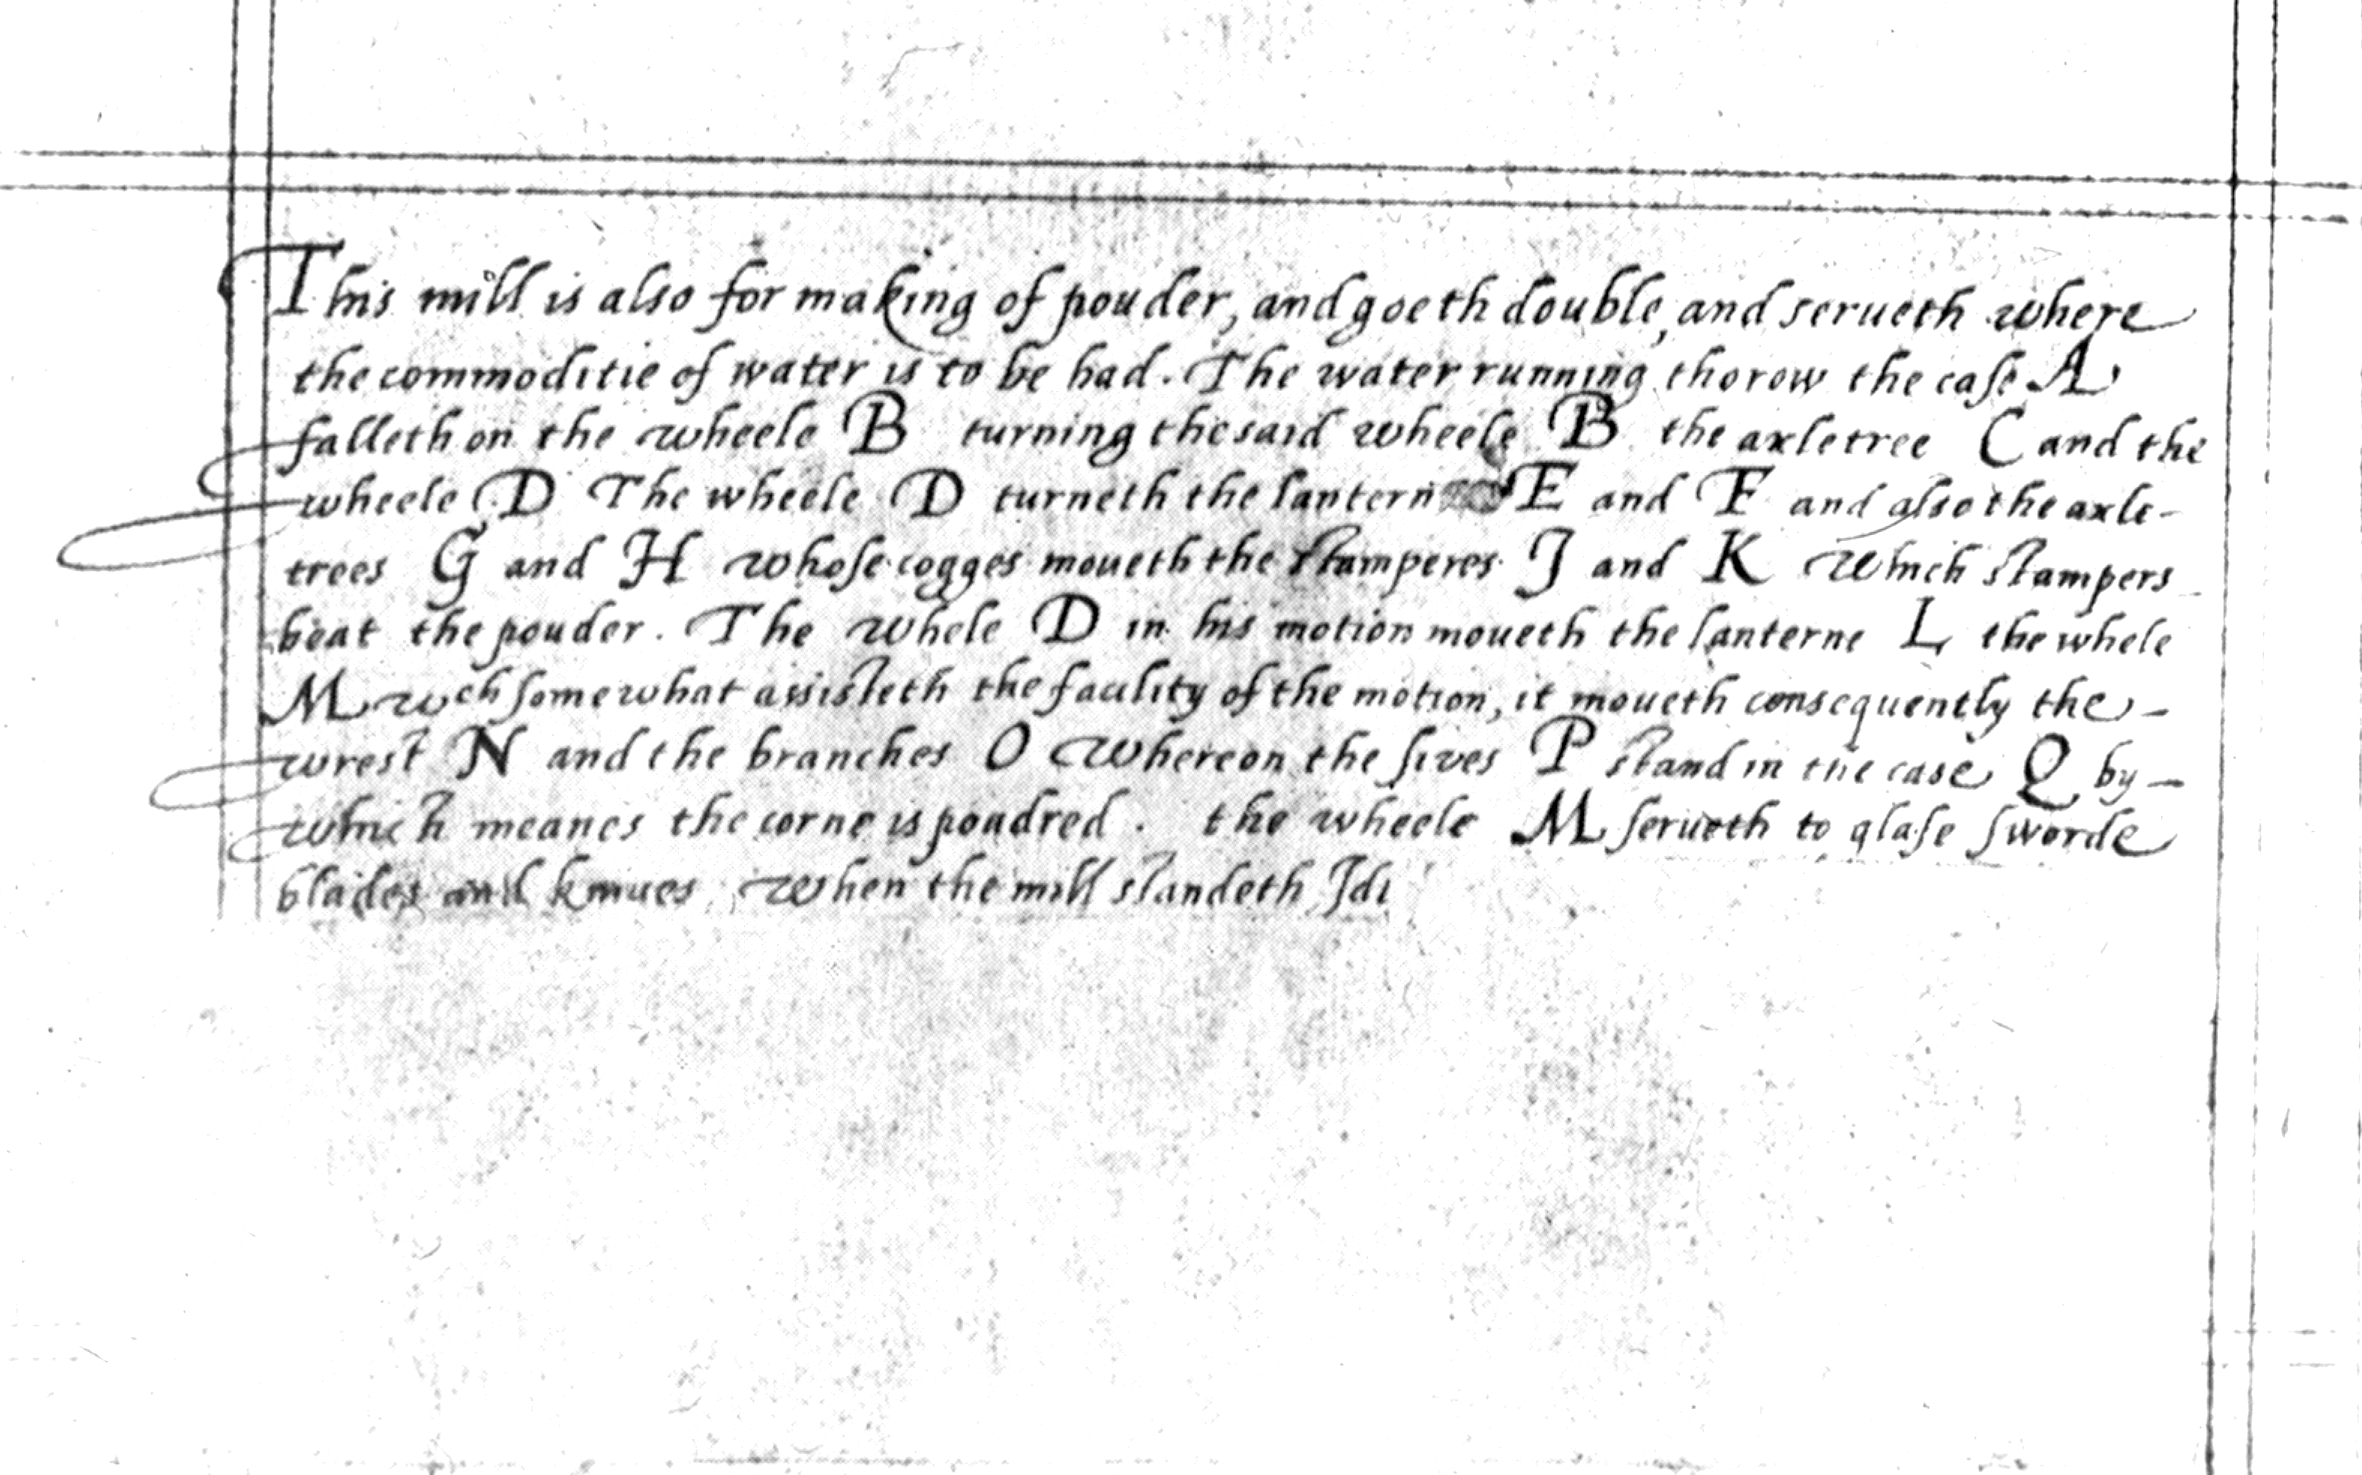 This mill is also for making of pouder, and goeth double, and serueth where
the commoditie of water is to be had. The water running thorow the case A
falleth on the wheele B turning the said wheele B the axletree C and the
wheele D The wheele D turneth the lantern E and F and also the axle-
trees G and H whose cogges moueth the stamperes J and K Which stampers
beat the pouder. The whele D in his motion moueth the lanterne L the whele
M wch somewhat assisteth the facility of the motion, it moueth consequently the -
wrest N and the branches O Whereon the sives P stand in the case Q by -
which meanes the corne is poudred. the wheele M serueth to glase sworde
blades and kniues When the mill standeth Jdl